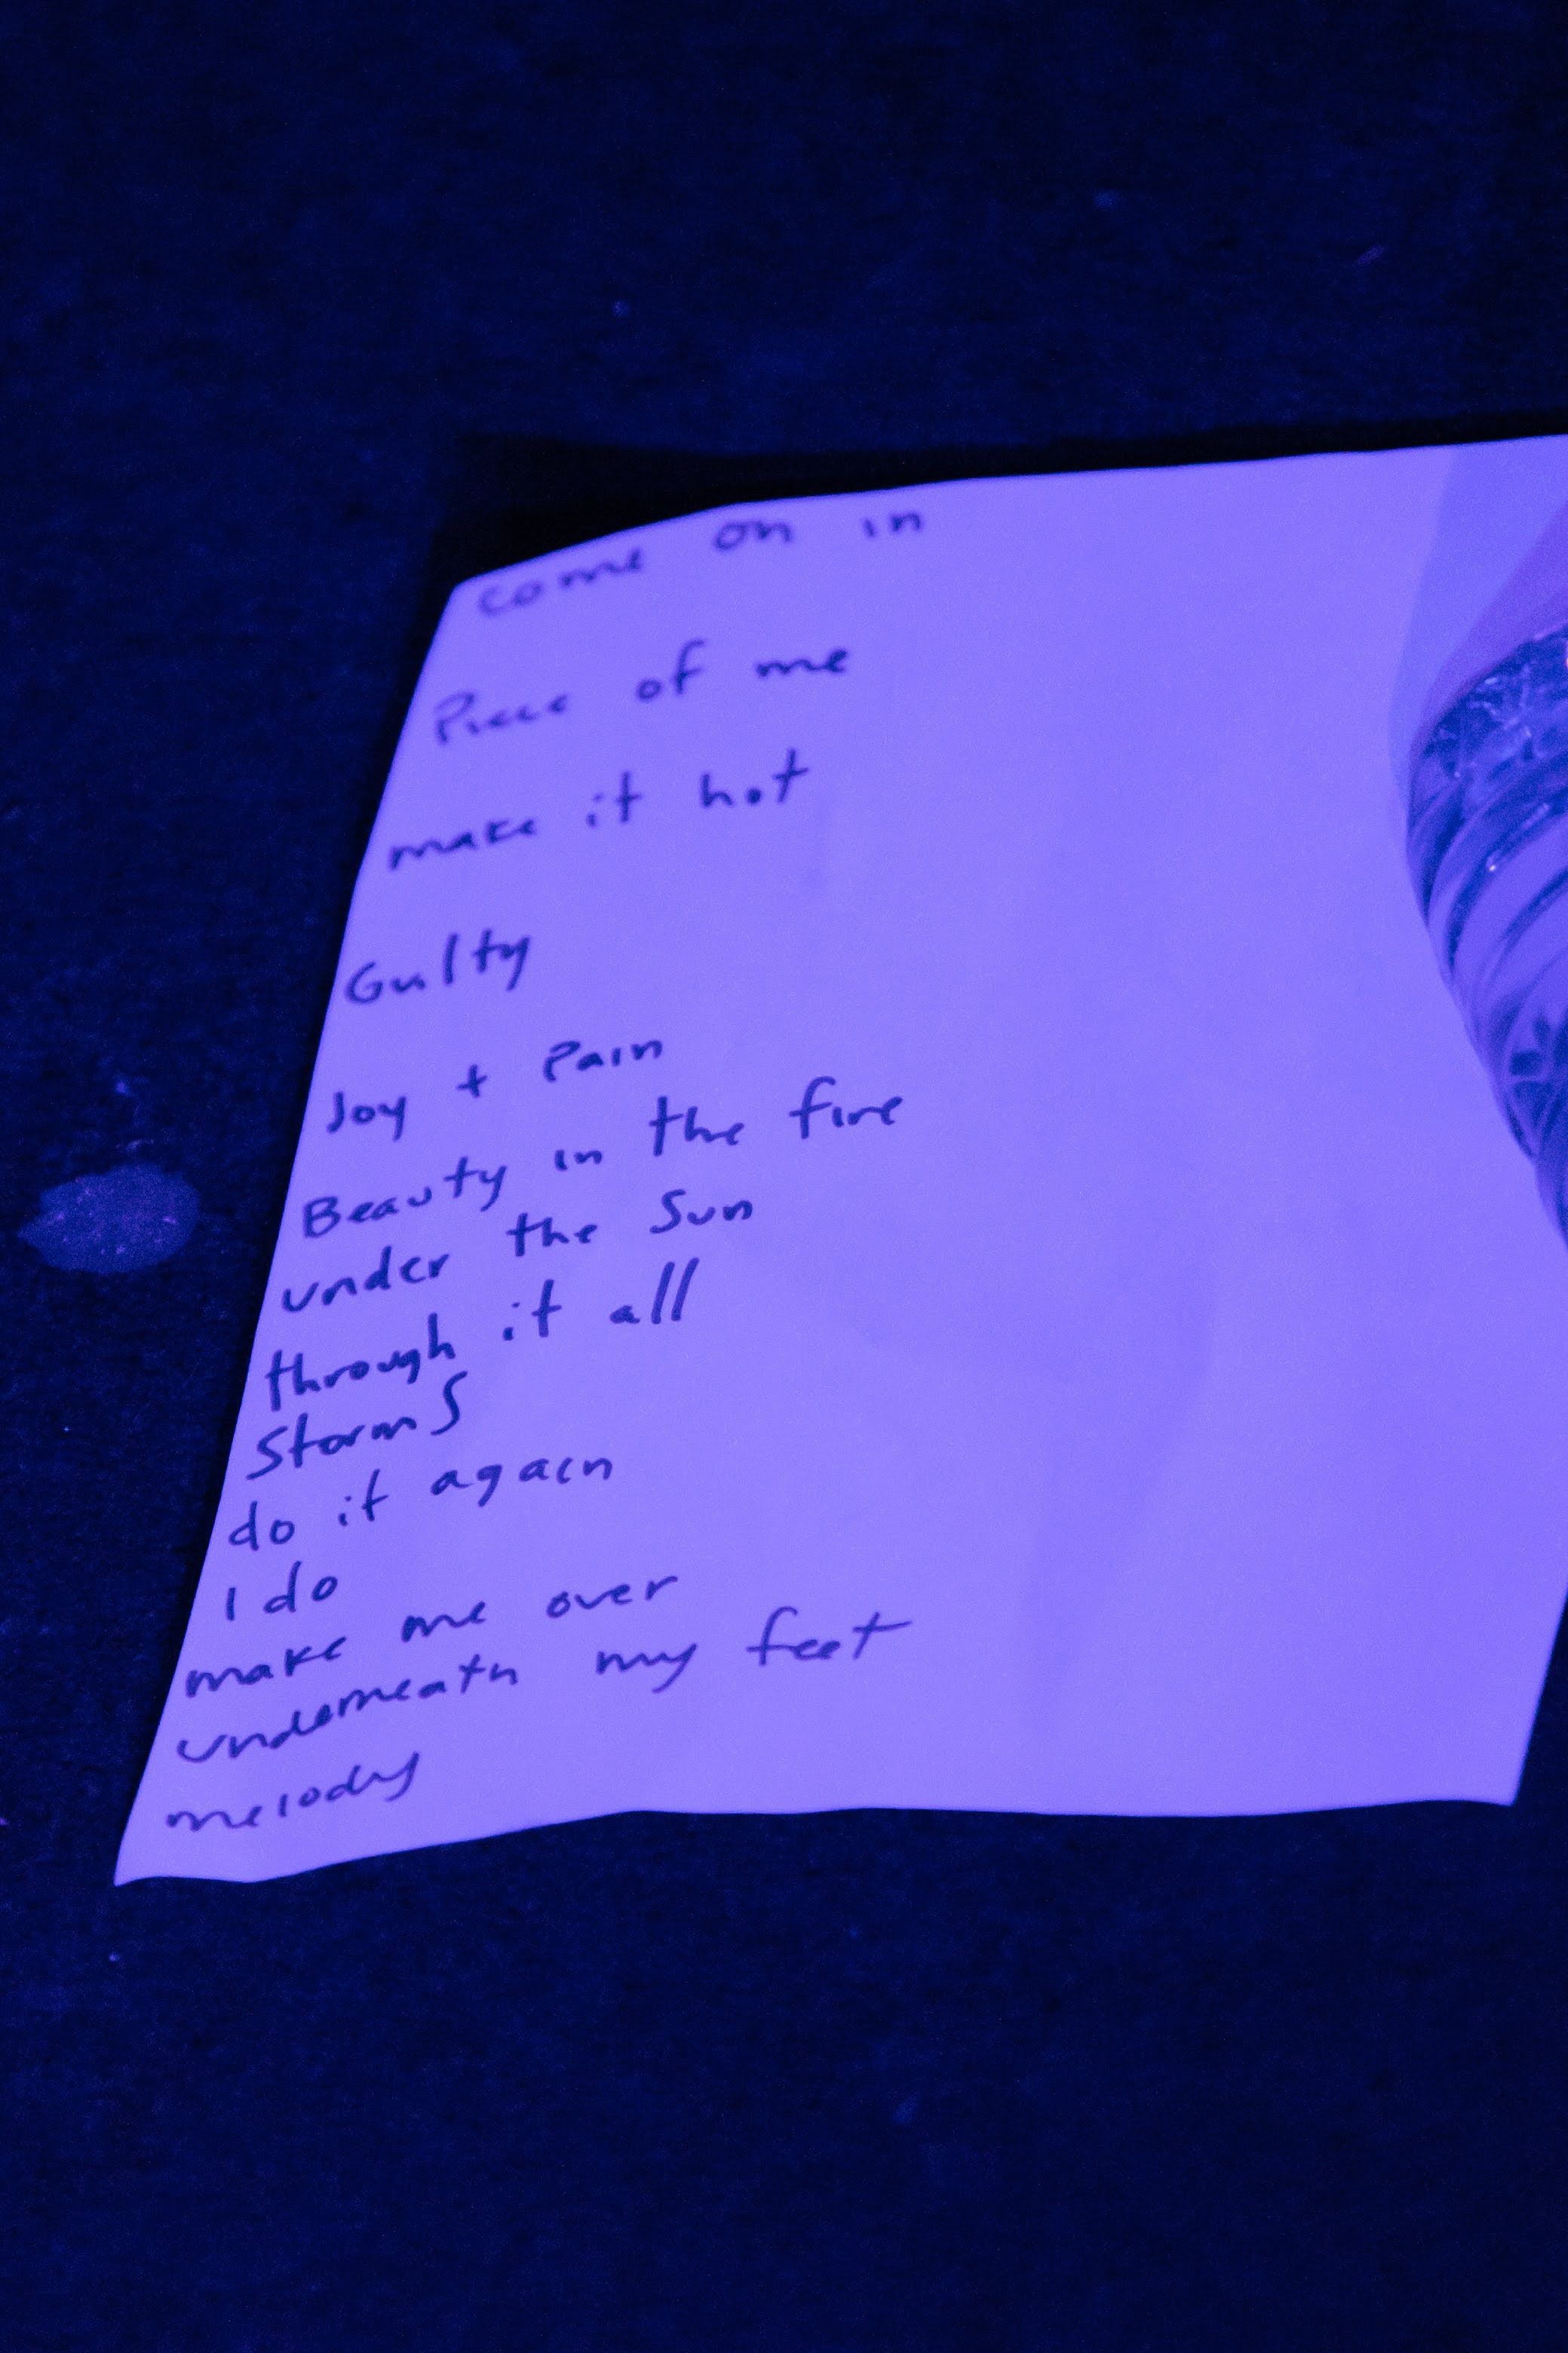 come on in
Piece of me
make it hot
Guilty
Joy + Pain
Beauty in the fire
under the Sun
through it all
Storms
do it again
I do
make me over
underneath my feet
melody